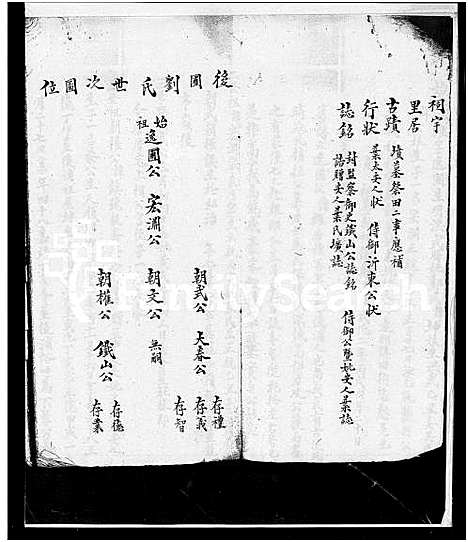 祠宇
里居
古蹟 墳墓祭田二事應補
行狀 葉太安人狀 侍御沂東公狀
誌銘 封監察御史鐵山公誌銘 侍御公暨姚安人葉誌
誥贈安人葉氏壙誌
後圃劉氏世次圖位
始祖逸圃公 宏淵公
朝式公 大春公 存禮 存義 存智
朝文公 無嗣
朝權公 鐵山公 存德 存業
FamilySearch